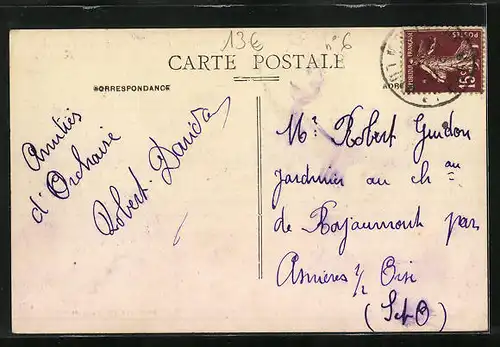 13€
n° 6
CARTE POSTALE
CORRESPONDANCE
POSTES
REPUBLIQUE FRANÇAISE
15c
Amitiés
d'Orchaise
Robert David
Mr Robert Guidon
Jardinier au chau
de Royaumont par
Asnières s/ Oise
(S et O)